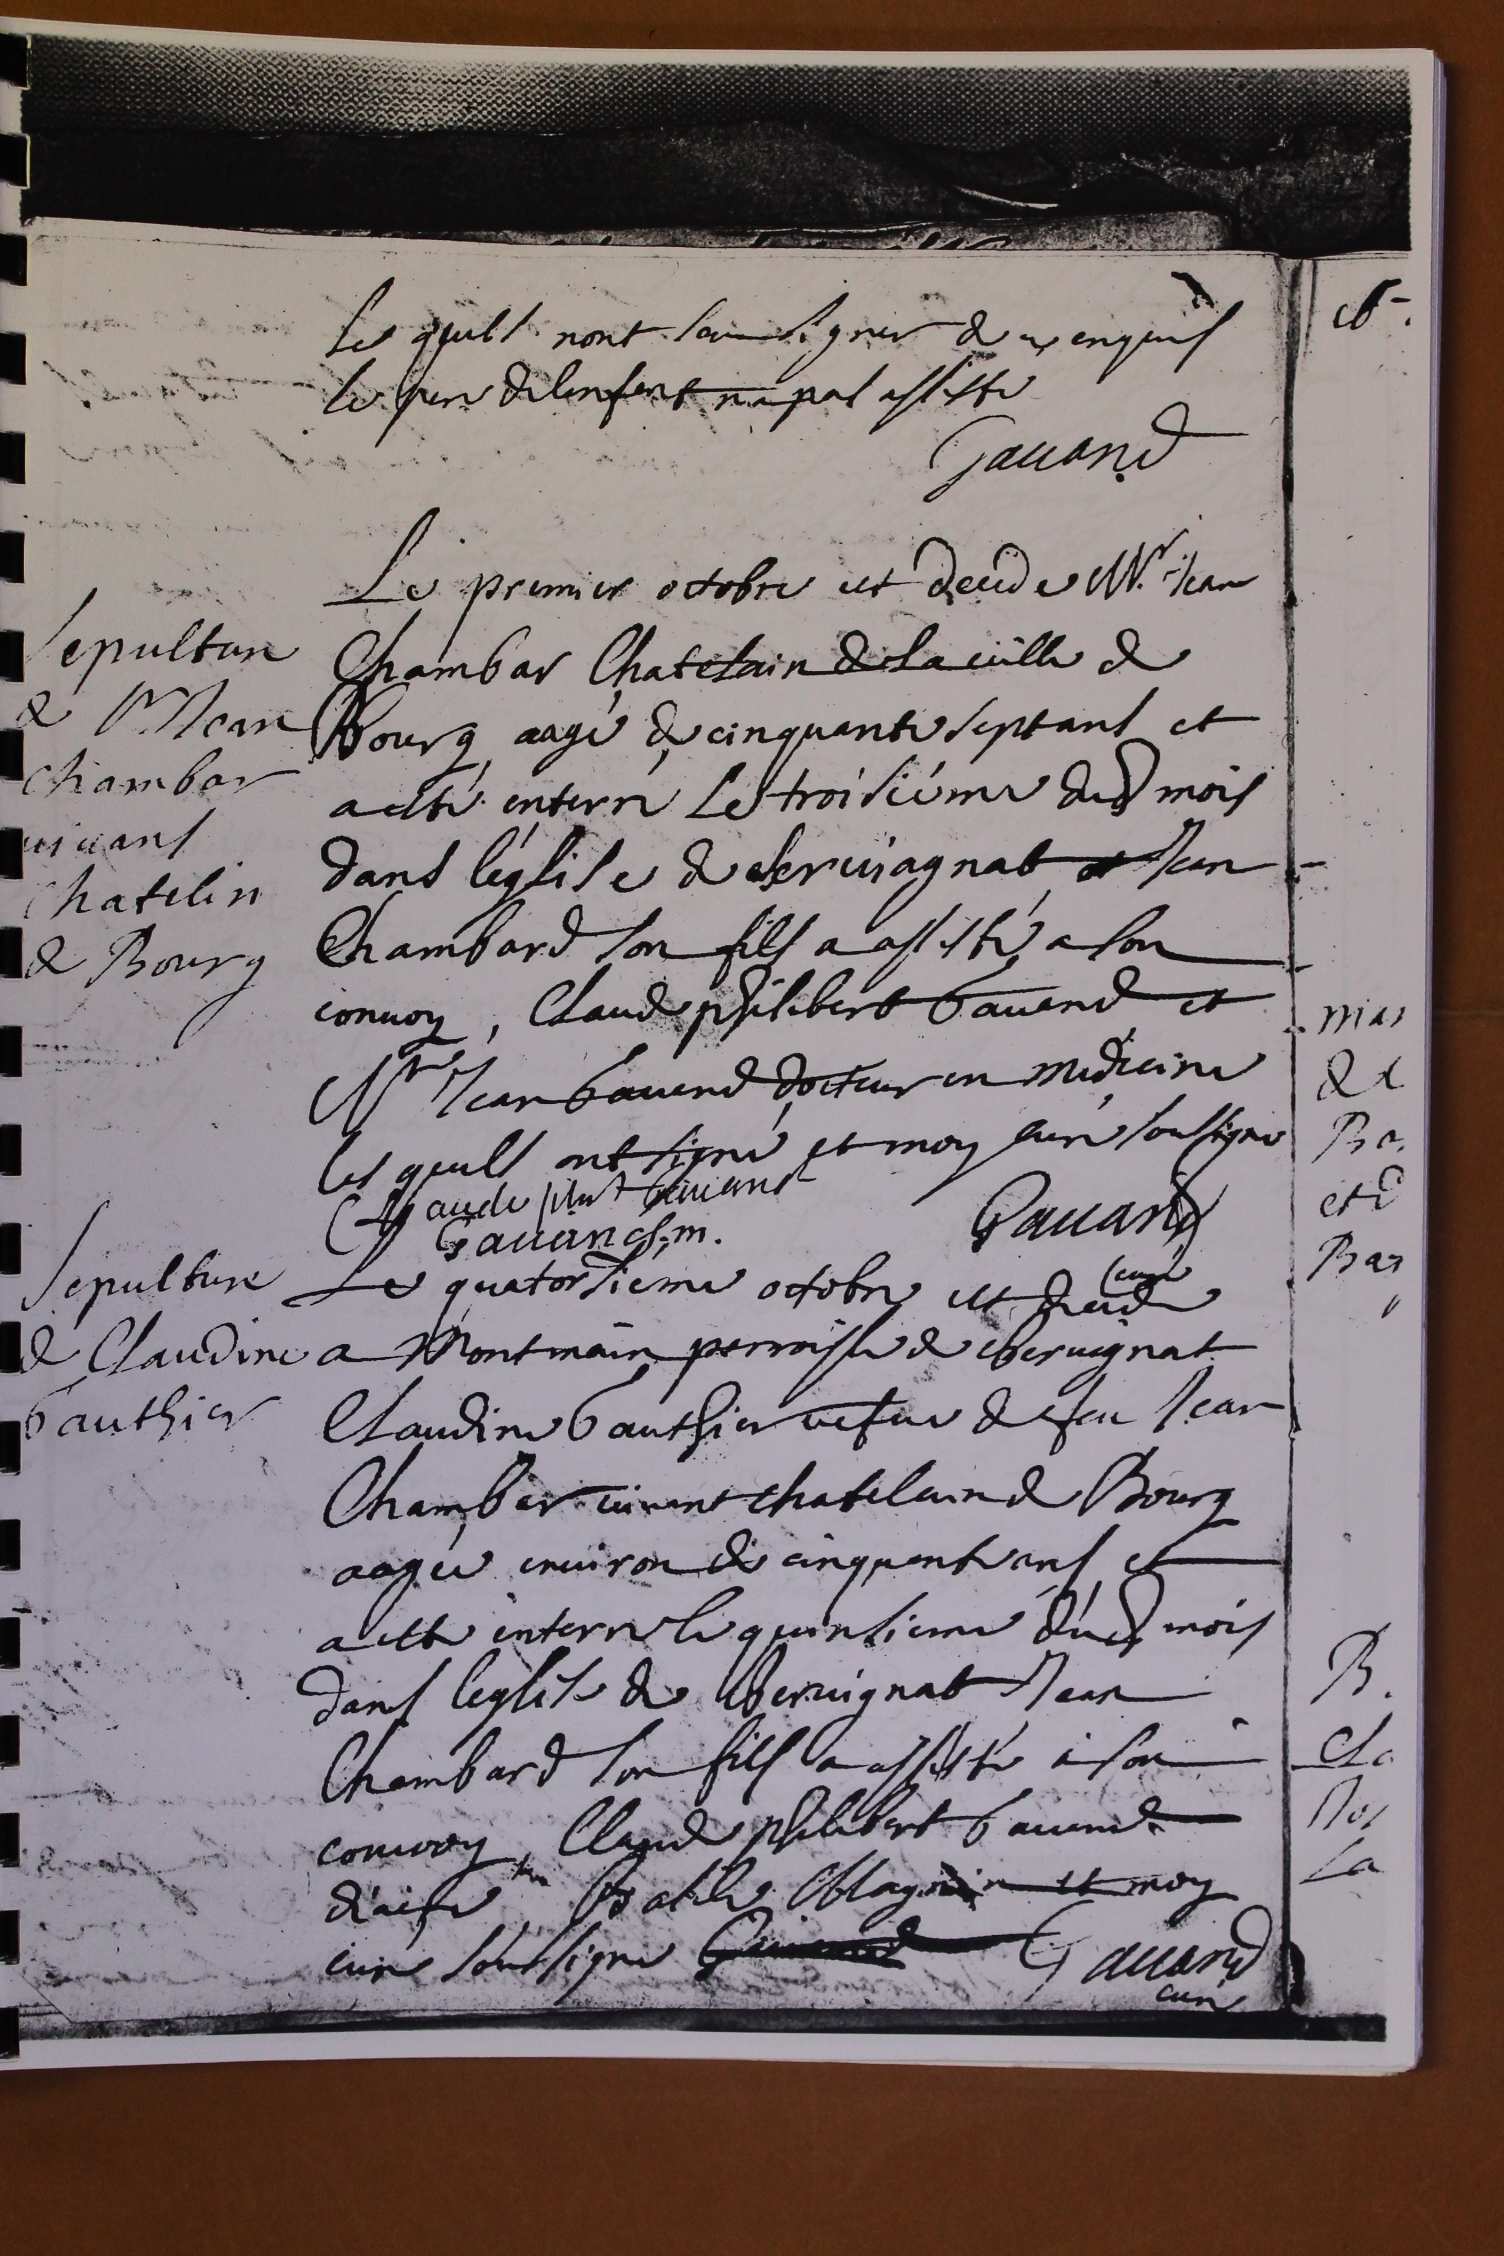 les quels nont sceu signer de ce enquis
le pere de lenfant na pas assisté
Gauand
Sepulture
de Mr Jean
Chambar
vivant
Chatelin
de Bourg
Le premier octobre est decede Mr. Jean
Chambar Chatelain de la ville de
Bourg aagé de cinquante sept ans et
a esté enterré Le troisiéme dud mois
dans léglise de cheruignat et Jean
Chambard son fils a assisté a son
convoy, Claude philibert Gauand et
Mr Jean Gauand docteur en medicine
les quels ont signé et moy curé soussigné
Claude phil Gauand
Gauand, m. Gauand
curé
Sepulture
de Claudine
Gauthier
Le quatorsieme octobre est decede
a Montmain parroisse de cheruignat
Claudine Gauthier vefue de feu Jean
Chambar viuant chatelain de Bourg
aagée enuiron de cinquante ans et
a esté enterré le quinsieme dud mois
dans leglise de cheruignat Jean
Chambard son fils a assisté à son
convoy, Claude philibert Gauand
diacre et moy
curé soussigné Gauand
curé